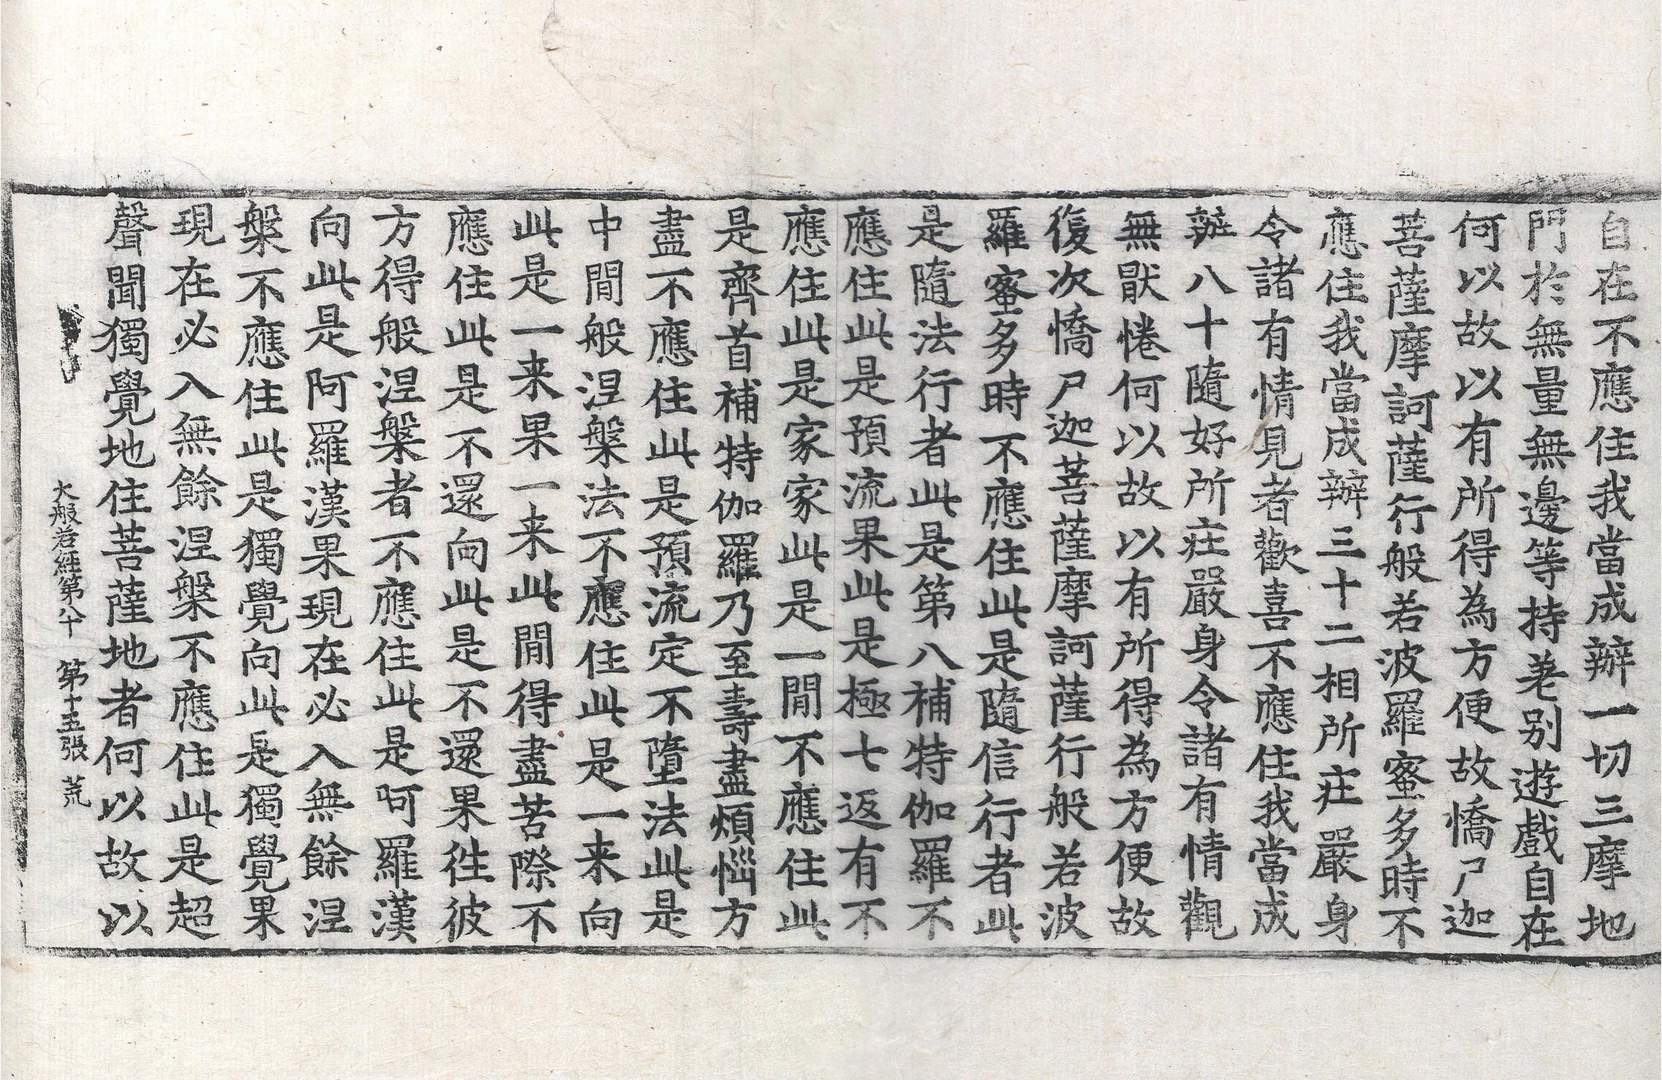 自在不應住我當成辦一切三摩地
門於無量無邊等持差別遊戲自在
何以故以有所得為方便故憍尸迦
菩薩摩訶薩行般若波羅蜜多時不
應住我當成辦三十二相所莊嚴身
令諸有情見者歡喜不應住我當成
辦八十隨好所莊嚴身令諸有情觀
無猒惓何以故以有所得為方便故
復次憍尸迦菩薩摩訶薩行般若波
羅蜜多時不應住此是隨信行者此
是隨法行者此是第八補特伽羅不
應住此是預流果此是極七返有不
應住此是家家此是一閒不應住此
是齊首補特伽羅乃至壽盡煩惱方
盡不應住此是預流定不墮法此是
中閒般涅槃法不應住此是一来向
此是一来果一来此閒得盡苦際不
應住此是不還向此是不還果往彼
方得般涅槃者不應住此是呵羅漢
向此是阿羅漢果現在必入無餘涅
槃不應住此是獨覺向此是獨覺果
現在必入無餘涅槃不應住此是超
聲聞獨覺地住菩薩地者何以故以
大般若經第八十 第十五張 荒